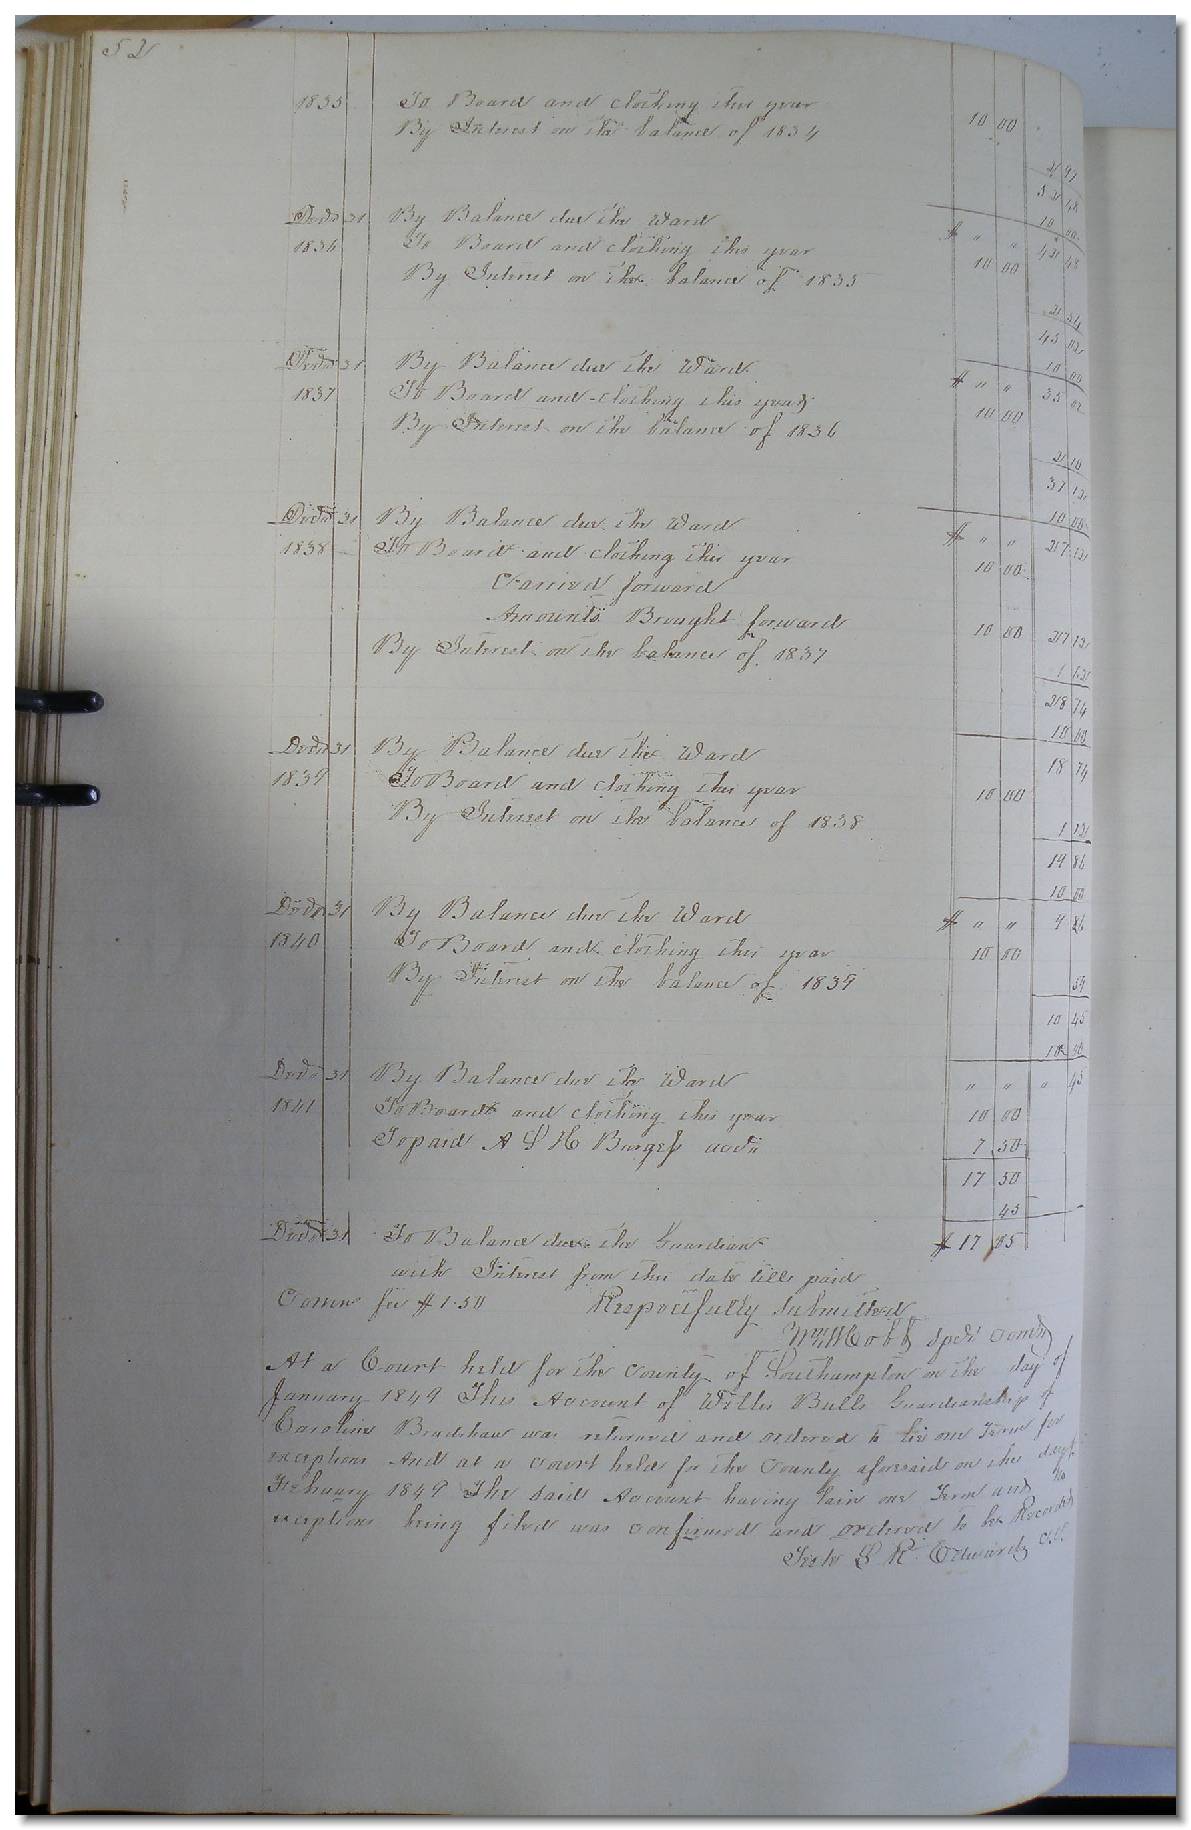 52
1835 To Board and clothing this year 10 00
By Interest on the balance of 1834 2 97
52 48
10 00
Decr 31 By Balance due the Ward $ " " 42 48
1836 To Board and clothing this year 10 00
By Interest on the balance of 1835 2 54
45 02
10 00
Decr 31 By Balance due the Ward $ " " 35 02
1837 To Board and clothing this year 10 00
By Interest on the balance of 1836 2 10
37 12
10 00
Decr 31 By Balance due the Ward $ " " 27 12
1838 To Board and clothing this year 10 00
Carried forward
Amounts Brought forward 10 00 27 12
By Interest on the balance of 1837 1 62
28 74
10 00
Decr 31 By Balance due the Ward 18 74
1839 To Board and clothing this year 10 00
By Interest on the balance of 1838 1 12
19 86
10 00
Decr 31 By Balance due the Ward $ " " 9 86
1840 To Board and clothing this year 10 00
By Interest on the balance of 1839 59
10 45
10 00
Decr 31 By Balance due the Ward " " " 45
1841 To Board and clothing this year 10 00
To paid A S H Burgess acct 7 50
17 50
45
Decr 31 To Balance due the Guardian $ 17 05
with Interest from this date till paid
Comr fee $1.50 Respectfully Submitted
Wm H Cobb Specl Comr
At a Court held for the County of Southampton on the day of
January 1849 This Account of Willis Bulls Guardianship of
Caroline Bradshaw was returned and ordered to lie one Term for
exceptions And at a court held for the County aforesaid on the day of
February 1849 The said Account having lain one Term and no
exceptions being filed was confirmed and ordered to be Recorded
Teste L R Edwards C.C.